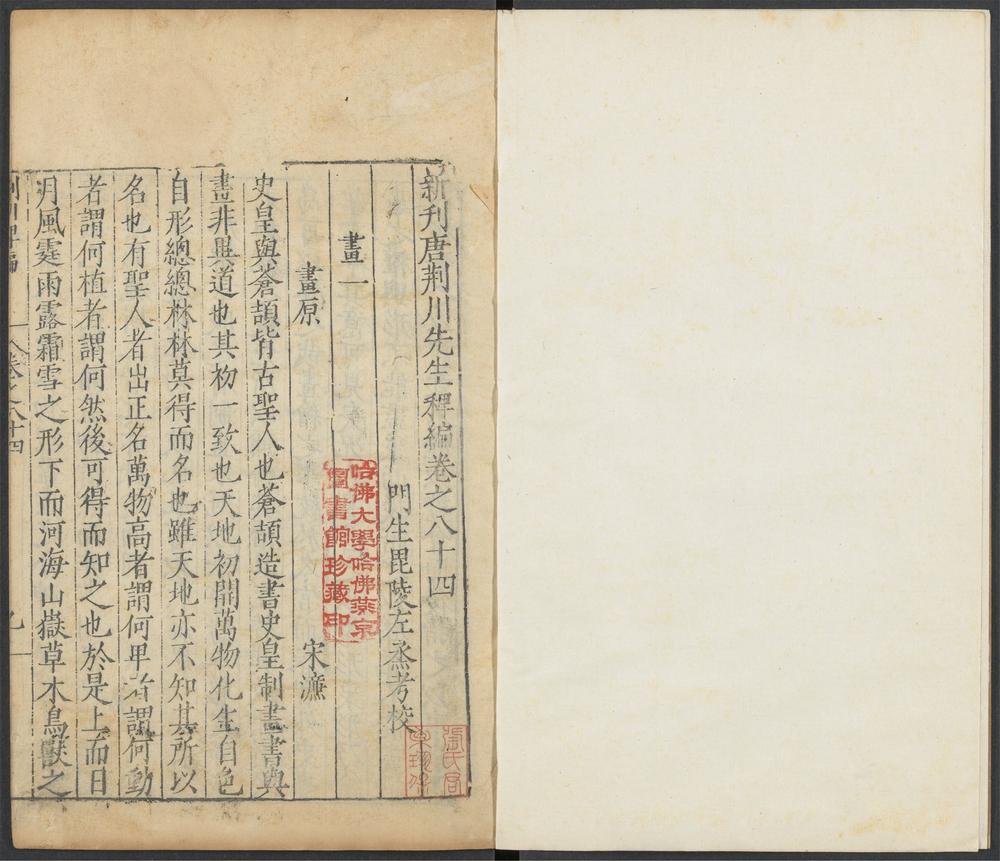 新刊唐荆川先生稗編卷之八十四
門生毘陵左烝考校
畫一
畫原
宋濂
史皇與蒼頡皆古聖人也蒼頡造書史皇制畫書與
畫非異道也其初一致也天地初開萬物化生自色
自形總總林林莫得而名也雖天地亦不知其所以
名也有聖人者出正名萬物高者謂何卑者謂何動
者謂何植者謂何然後可得而知之也於是上而日
月風霆雨露霜雪之形下而河海山嶽草木鳥獸之
荆川稗編
卷之八十四
哈佛大學哈佛燕京
圖書館珍藏印